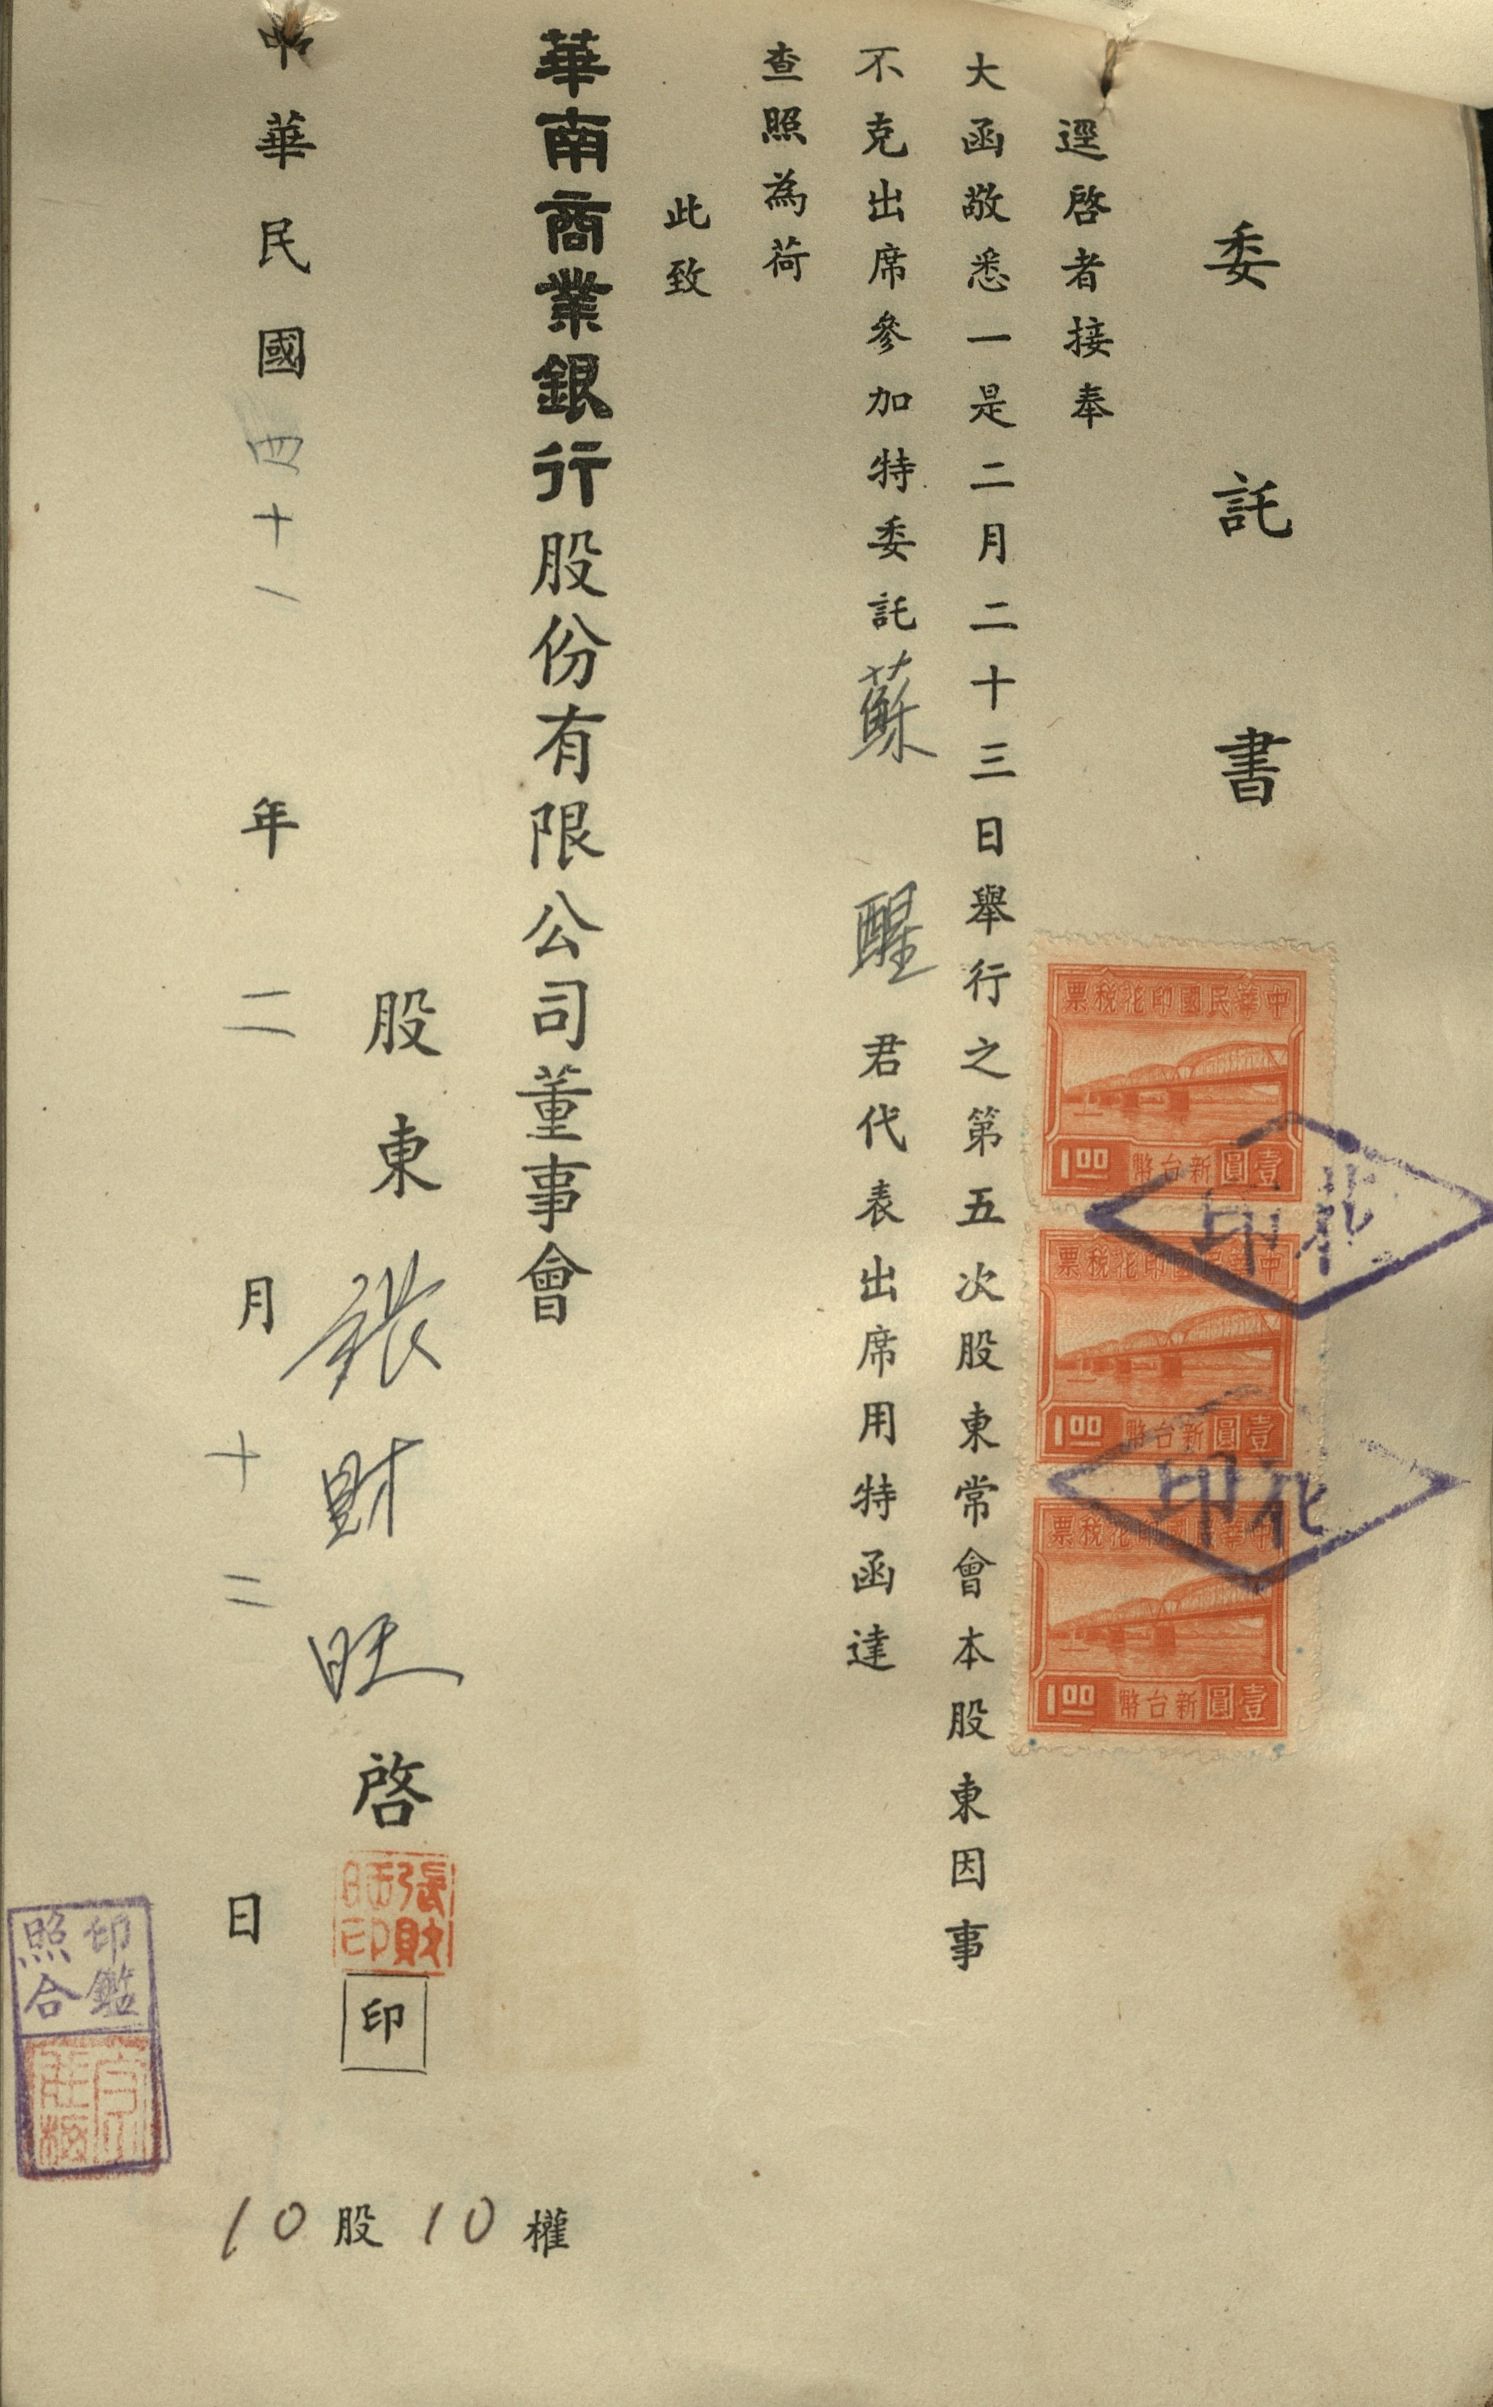 委託書
逕啓者接奉
大函敬悉一是二月二十三日舉行之第五次股東常會本股東因事
不克出席參加特委託蘇醒君代表出席用特函達
查照為荷
此致
華南商業銀行股份有限公司董事會
股東張財旺啓
張財旺印
印
中華民國四十一年二月十二日
10股10權
中華民國印花稅票
壹圓新台幣
1.00
中華民國印花稅票
壹圓新台幣
1.00
中華民國印花稅票
壹圓新台幣
1.00
印花
印花
印鑑
照合